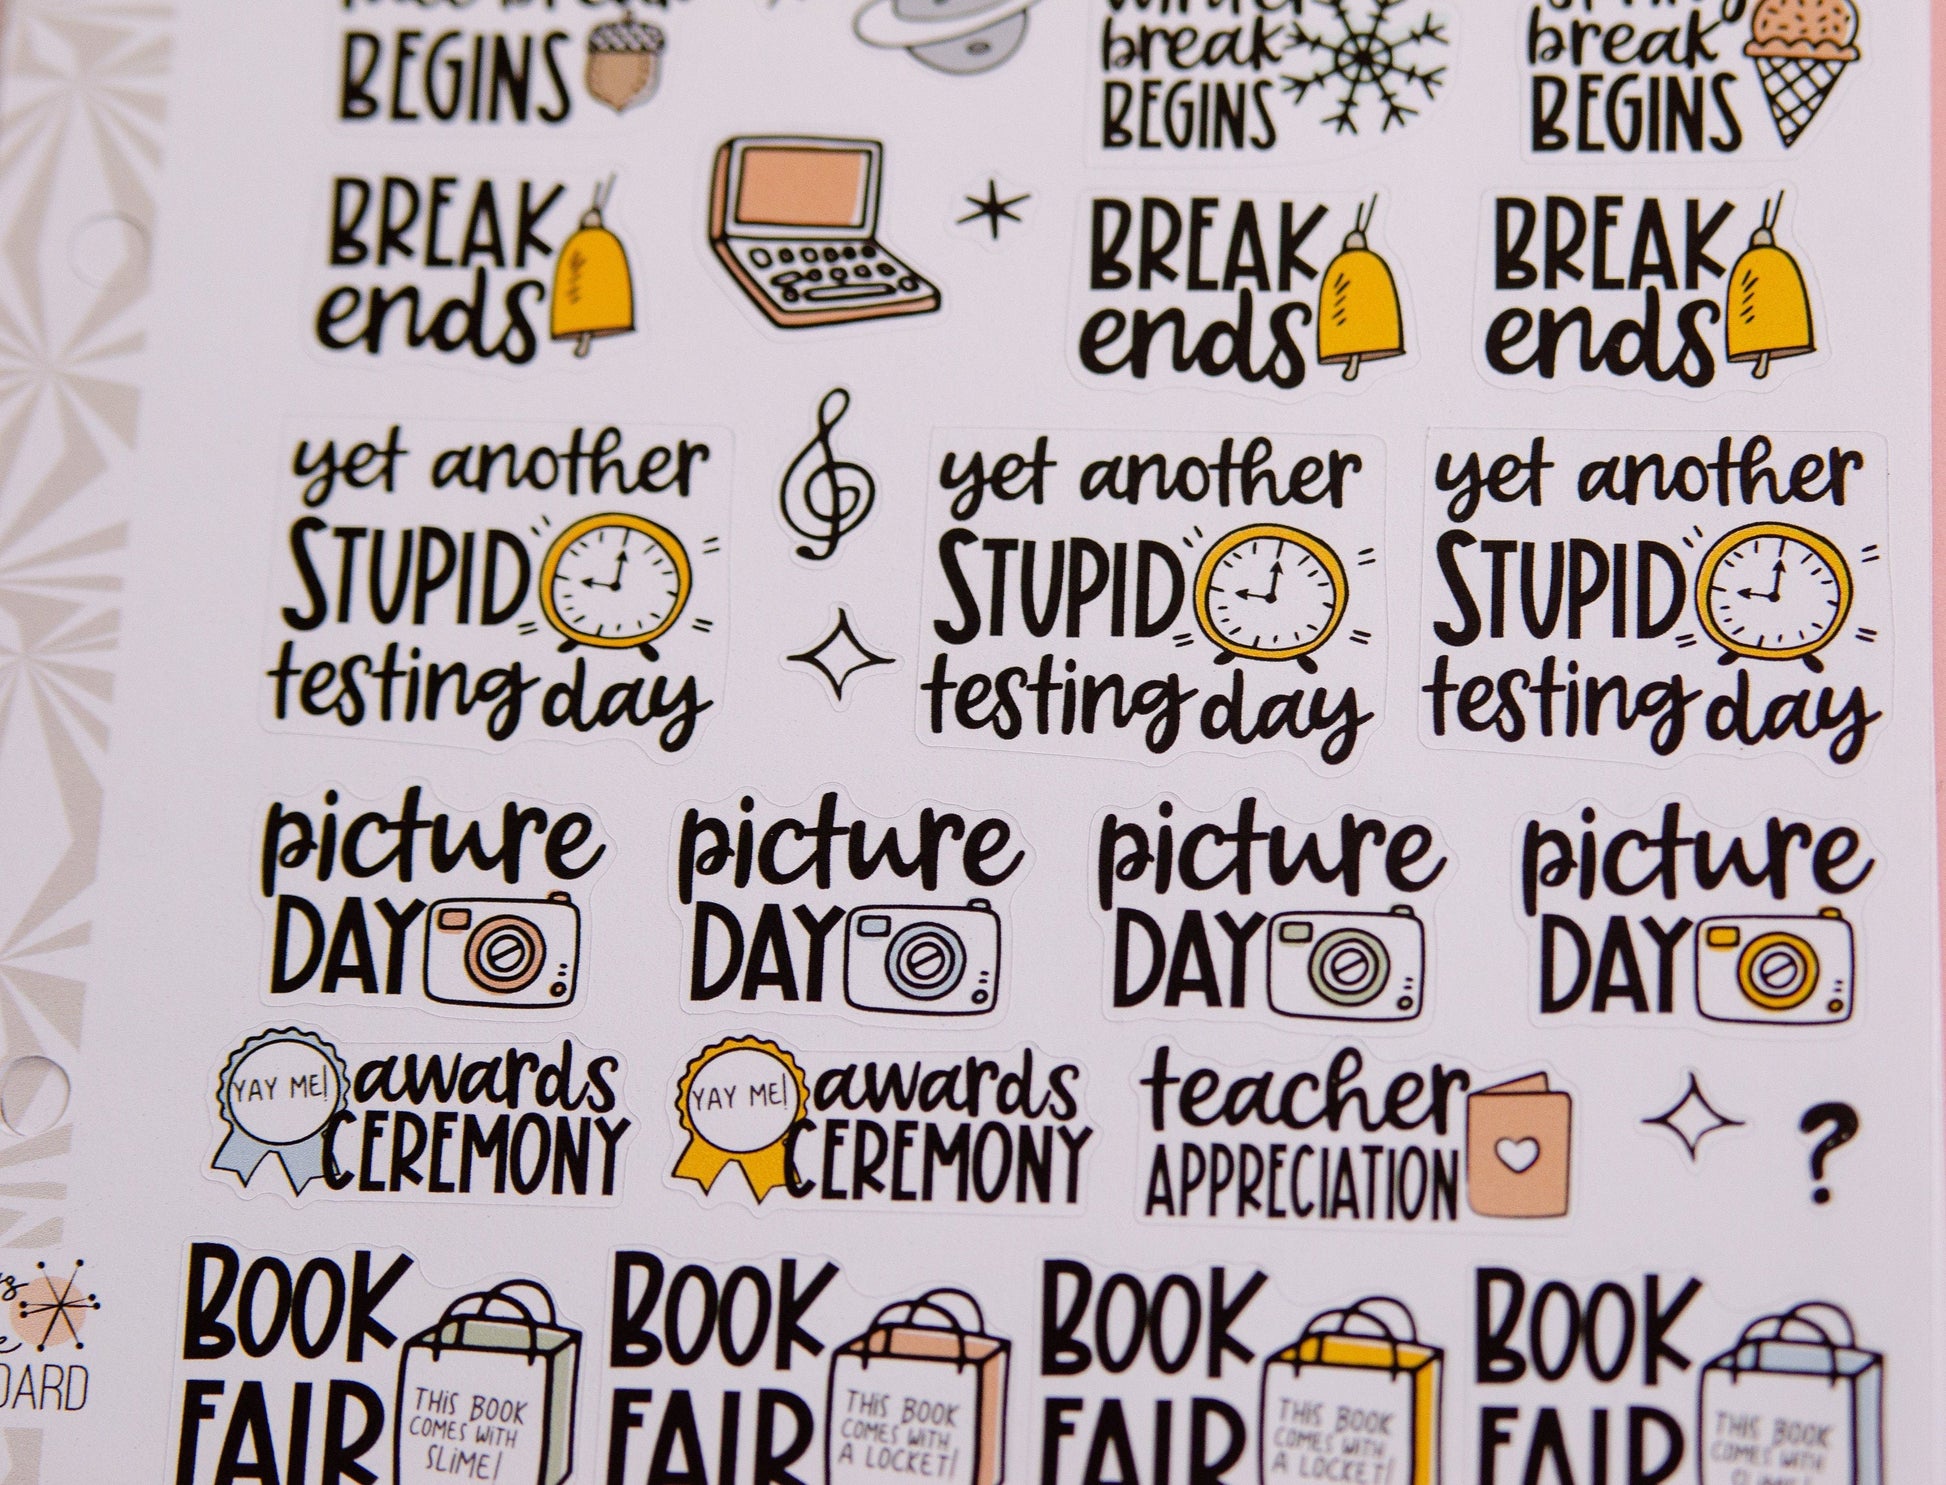 BEGINS
winter
break
BEGINS
spring
break
BEGINS
BREAK
ends
BREAK
ends
BREAK
ends
yet another
STUPID
testing day
yet another
STUPID
testing day
yet another
STUPID
testing day
picture
DAY
picture
DAY
picture
DAY
picture
DAY
YAY ME!
awards
CEREMONY
YAY ME!
awards
CEREMONY
teacher
APPRECIATION
?
BOOK
FAIR
THIS BOOK
COMES WITH
SLIME!
BOOK
FAIR
THIS BOOK
COMES WITH
A LOCKET!
BOOK
FAIR
THIS BOOK
COMES WITH
A LOCKET!
BOOK
FAIR
THIS BOOK
COMES WITH